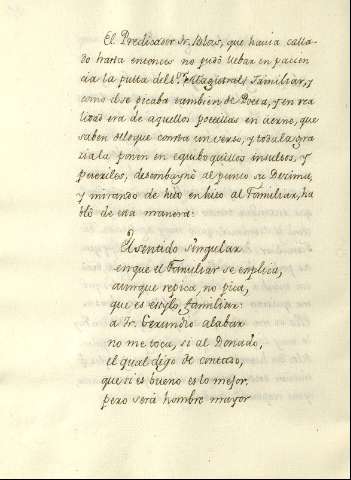 El Predicador Fr. Blas, que havia calla-
do hasta entonces no pudo llebar en pacien
cia la pulla del Sr. Magistral Familiar, y
como él se picaba tambien de Poeta, y en rea
lidad era de aquellos poetillas en cierne, que
saben a lo que consta un verso, y toda la gra
cia la ponen en equiboquillos insulsos, y
pueriles, desembaynò al punto su Decima,
y mirando de hito en hito al Familiar, ha
blò de esta manera:
El sentido singular
en que el Familiar se explica,
aunque repica, no pica,
que es estylo familiar:
a Fr. Gerundio alabar
no me toca, si al Donado,
el qual digo de contado,
que si es bueno es lo mejor,
pero será hombre mayor